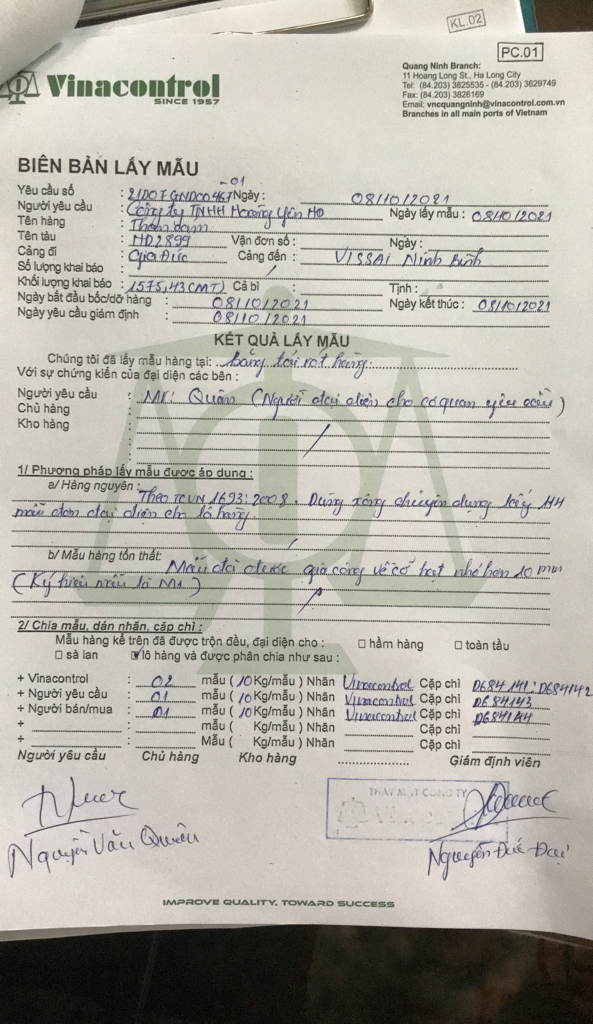 KL.02
PC.01
Vinacontrol
SINCE 1957
Quang Ninh Branch:
11 Hoang Long St., Ha Long City
Tel: (84.203) 3825535 - (84.203) 3629749
Fax: (84.203) 3826169
Email: vncquangninh@vinacontrol.com.vn
Branches in all main ports of Vietnam
BIÊN BẢN LẤY MẪU
Yêu cầu số : 21D07GND00467-01 Ngày : 08/10/2021
Người yêu cầu : Công ty TNHH Hoàng Yên HD Ngày lấy mẫu : 08/10/2021
Tên hàng : Than cám
Tên tàu : HD2899 Vận đơn số : Ngày :
Cảng đi : Gia Đức Cảng đến : VISSAI Ninh Bình
Số lượng khai báo :
Khối lượng khai báo : 1575,43(MT) Cả bì Tịnh :
Ngày bắt đầu bốc/dỡ hàng : 08/10/2021 Ngày kết thúc : 08/10/2021
Ngày yêu cầu giám định : 08/10/2021
KẾT QUẢ LẤY MẪU
Chúng tôi đã lấy mẫu hàng tại: băng tải rót hàng
Với sự chứng kiến của đại diện các bên :
Người yêu cầu : Mr: Quân (Người đại diện cho cơ quan yêu cầu)
Chủ hàng :
Kho hàng :
1/ Phương pháp lấy mẫu được áp dụng :
a/ Hàng nguyên : Theo TCVN 1693:2008. Dùng xẻng chuyên dụng lấy
mẫu đơn đại diện cho lô hàng.
b/ Mẫu hàng tổn thất: Mẫu đã được gia công về cỡ hạt nhỏ hơn 10 mm
(Ký hiệu mẫu là M1)
2/ Chia mẫu, dán nhãn, cặp chì :
Mẫu hàng kể trên đã được trộn đều, đại diện cho : ☐ hầm hàng ☐ toàn tàu
☐ sà lan ☑ lô hàng và được phân chia như sau :
+ Vinacontrol : 02 mẫu ( 10 Kg/mẫu ) Nhãn Vinacontrol Cặp chì D684141; D684142
+ Người yêu cầu : 01 mẫu ( 10 Kg/mẫu ) Nhãn Vinacontrol Cặp chì D684143
+ Người bán/mua : 01 mẫu ( 10 Kg/mẫu ) Nhãn Vinacontrol Cặp chì D684144
+ : mẫu ( Kg/mẫu ) Nhãn Cặp chì
+ : Mẫu ( Kg/mẫu ) Nhãn Cặp chì
Người yêu cầu Chủ hàng Kho hàng Giám định viên
THAY MẶT CÔNG TY
Nguyễn Văn Quân
Nguyễn Đức Đại
IMPROVE QUALITY, TOWARD SUCCESS